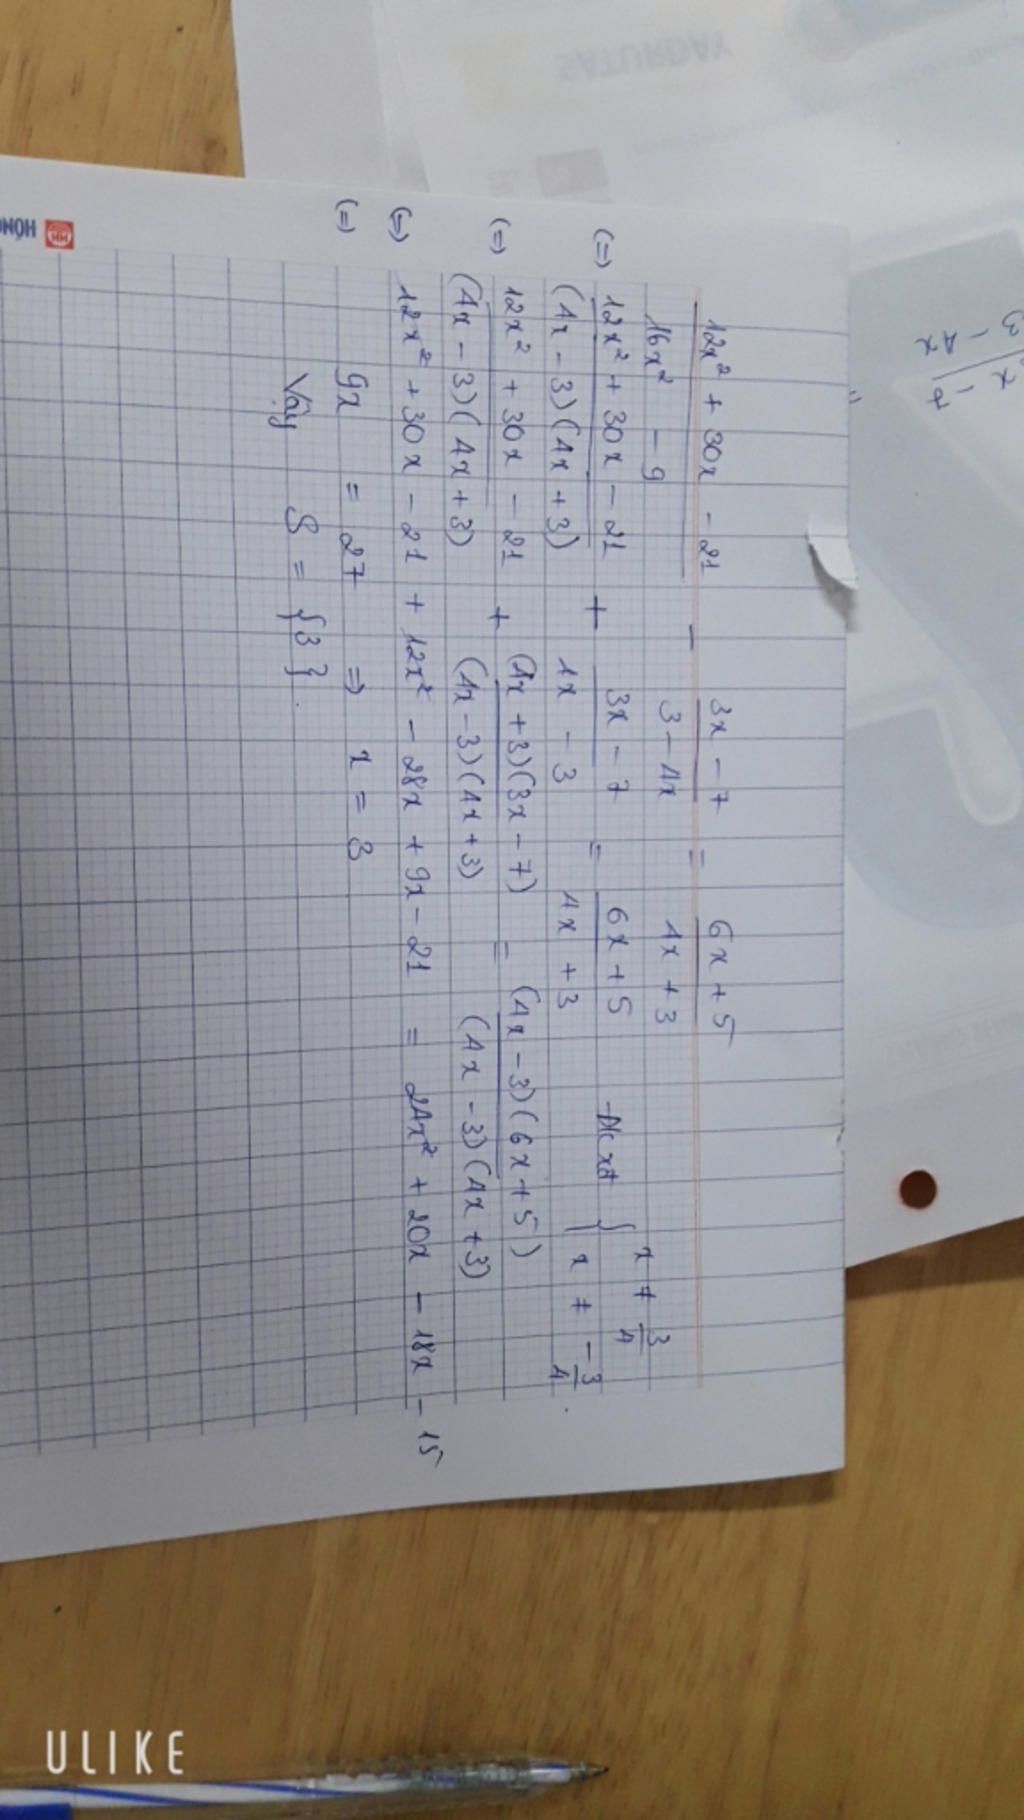 12x² + 30x - 21 / 16x² - 9 - 3x - 7 / 3 - 4x = 6x + 5 / 4x + 3
ĐKXĐ { x ≠ 3/4
x ≠ -3/4
(=) 12x² + 30x - 21 / (4x - 3)(4x + 3) + 3x - 7 / 4x - 3 = 6x + 5 / 4x + 3
(=) 12x² + 30x - 21 / (4x - 3)(4x + 3) + (4x + 3)(3x - 7) / (4x - 3)(4x + 3) = (4x - 3)(6x + 5) / (4x - 3)(4x + 3)
(=) 12x² + 30x - 21 + 12x² - 28x + 9x - 21 = 24x² + 20x - 18x - 15
(=) 9x = 27 => x = 3
Vậy S = {3}
x - 7
3 - 4x
SATURDAY
HH
ULIKE